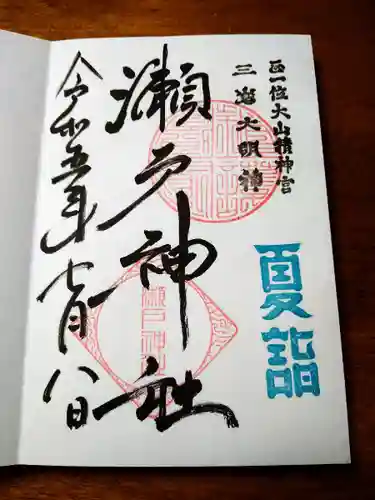 正一位大山積神宮
三嶋大明神
夏詣
瀬戸神社
令和五年七月八日